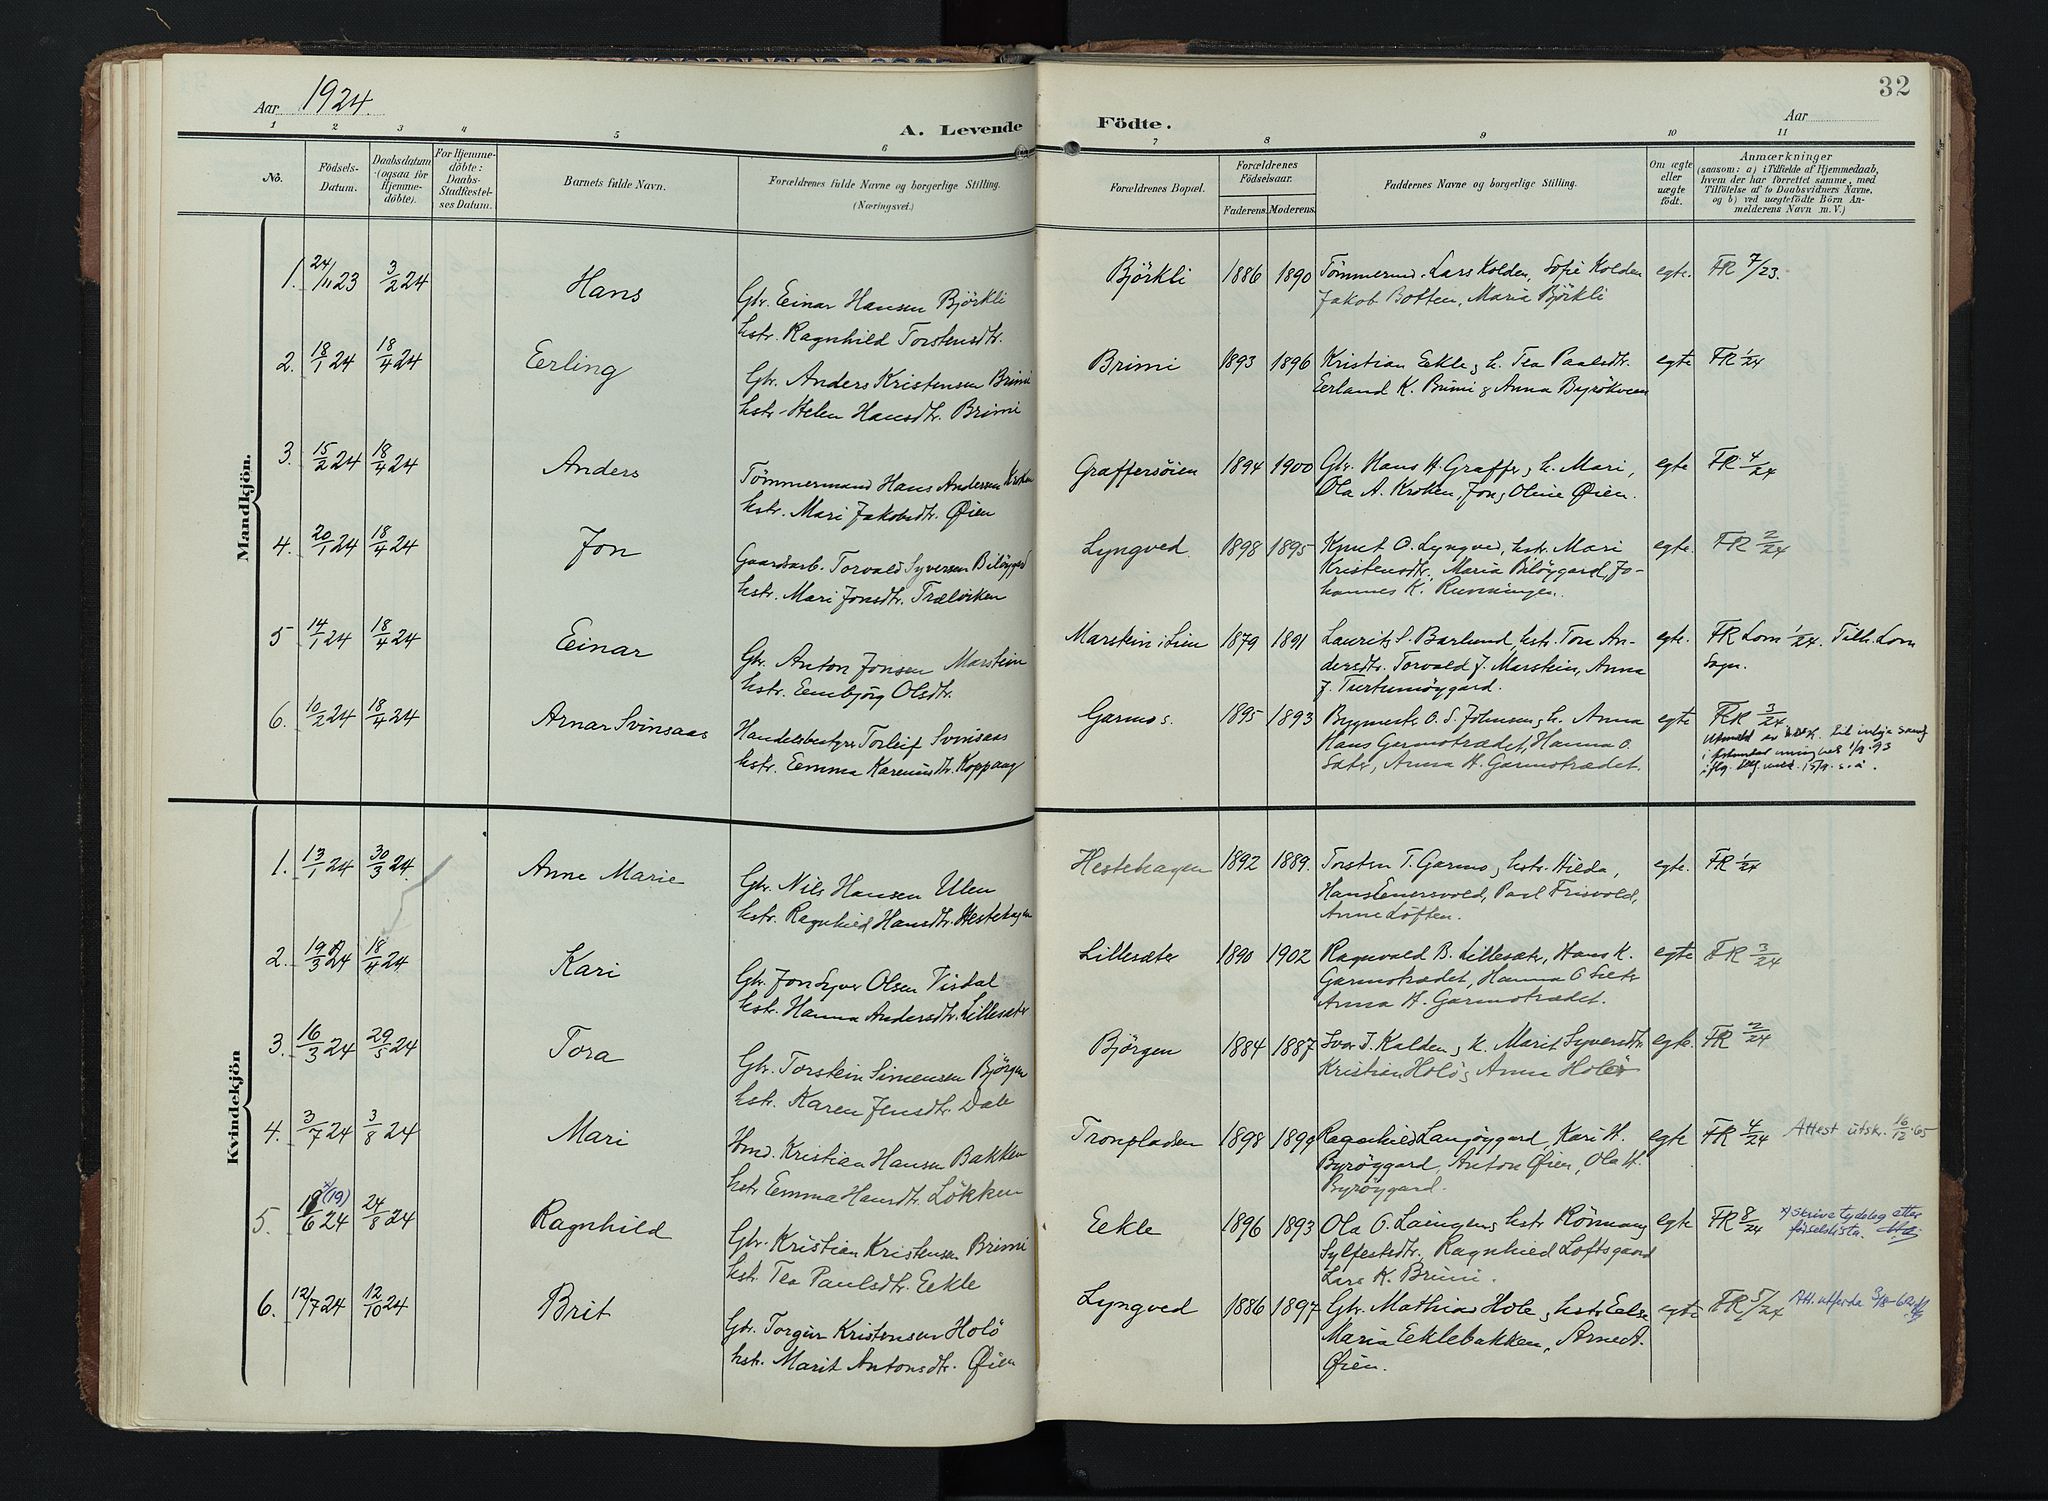 Aar 1924.
A. Levende Födte.
Aar
32
1 2 3 4 5 6 7 8 9 10 11
No.
Födsels-Datum.
Daabsdatum (ogsaa for Hjemmedöbte).
For Hjemmedöbte: Daabs-Stadfæstelses Datum.
Barnets fulde Navn.
Forældrenes fulde Navne og borgerlige Stilling.
(Næringsvei.)
Forældrenes Bopæl.
Forældrenes Födselsaar.
Faderens. Moderens.
Faddernes Navne og borgerlige Stilling.
Om ægte eller uægte födt.
Anmærkninger
(saasom: a) i Tilfælde af Hjemmedaab, hvem der har forrettet samme, med Tilföielse af to Daabsvidners Navne, og b) ved uægtefödte Börn Anmelderens Navn m. V.)
Mandkjön.
1. 24/11 23 3/2 24 Hans Gbr. Einar Hansen Björkli Björkli 1886 1890 Lars Kolden, Sofie Kolden egte. FR 7/23.
hstr. Ragnhild Torstensdtr. Jakob Botten, Maria Björkli
2. 18/1 24 18/4 24 Eerling Gbr. Anders Kristensen Brimi Brimi 1893 1896 Kristian Eekle & h. Tea Paalsdtr. egte FR 1/24
hstr. Helen Hansdtr. Brimi Eerland K. Brimi & Anna
3. 15/2 24 18/4 24 Anders Tömmermand Hans Andersen Kroken Graffersøien 1894 1900 Gbr. Hans H. Graffer & h. Mari, egte FR 4/24
hstr. Mari Jakobsdtr. Øien Ola A. Kroken, Jon & Oline Øien.
4. 20/1 24 18/4 24 Jon Gaardsarb. Torvald Syversen Bilöygard Lyngved. 1898 1895 Knut O. Lyngved, hstr. Mari egte. FR 2/24
hstr. Mari Jonsdtr. Trælviken Kristensdtr., Maria Bilöygard, Jo-
hannes K. Runningen.
5 14/1 24 18/4 24 Einar Gbr. Anton Jonsen Marstein Marstein i Lien 1879 1891 Laurits S. Barlund, hstr. Tora An- egte. FR Lom 1/24. Tilh. Lom
hstr. Eembjörg Olsdtr. dersdtr. Torvald J. Marstein, Anna Sogn.
J.
6. 10/2 24 18/4 24 Arnar Svinsaas Handelsbestyrer Torleif Svinsaas Garmo s. 1895 1893 Bygmestr. O. S. Johnsen & h. Anna egte FR 3/24
hstr. Eemma Koppang Hans Garmotrædet, Hanna O.
Sæter, Anna H. Garmotrædet.
Kvindekjön
1. 13/1 24 30/3 24 Anne Marie Gbr. Nils Hansen Ulen Hestehagen 1892 1889. Torsten T. Garmo & hstr. Hilda, egte. FR 1/24
hstr. Ragnhild Hansdtr. Hestehagen Paul Frisvold,
Anne Löften.
2. 19/3 24 18/4 24 Kari Gbr. Jon Syver Olsen Visdal Lillesæter 1890 1902 Ragnvald B. Lillesæter, Hans K. egte FR 3/24
hstr. Hanna Andersdtr. Lillesæter Garmotrædet, Hanna O Sæter
Anna H. Garmotrædet.
3. 16/3 24 29/5 24 Tora Gbr. Torstein Simensen Björgen Björgen 1884 1887 Ivar J. Kolden & h. Marit Syversdtr. egte. FR 2/24
hstr. Karen Jensdtr. Dale Kristian Holö & Anna Holö
4. 3/7 24 3/8 24 Mari Hmd. Kristian Hansen Bakken Tronpladsen 1898 1899 Ragnhild Kari H. egte FR 4/24 Attest utskr. 16/12-65
hstr. Eemma Hansdtr. Lökken Byröygard, Anton Øien, Ola H.
Byröygard.
5. 18/6 24 x(19) 24/8 24 Ragnhild Gbr. Kristian Kristensen Brimi Eekle 1896 1893 Ola O. hstr Rönnaug egte FR 8/24 x) Skrive tydeleg etter
hstr. Tea Paulsdtr. Eekle Sylfestdtr, Ragnhild Loftsgaard fødselslista.
Lars K. Brimi.
6. 12/7 24 12/10 24 Brit Gbr. Torgeir Kristensen Holö Lyngved 1886 1897 Gbr. Mathias Hole & hstr. Eelse egte FR 5/24 Att. utferda
hstr. Marit Antonsdtr. Øien Maria Eeklebakken, Arne A.
Øien.